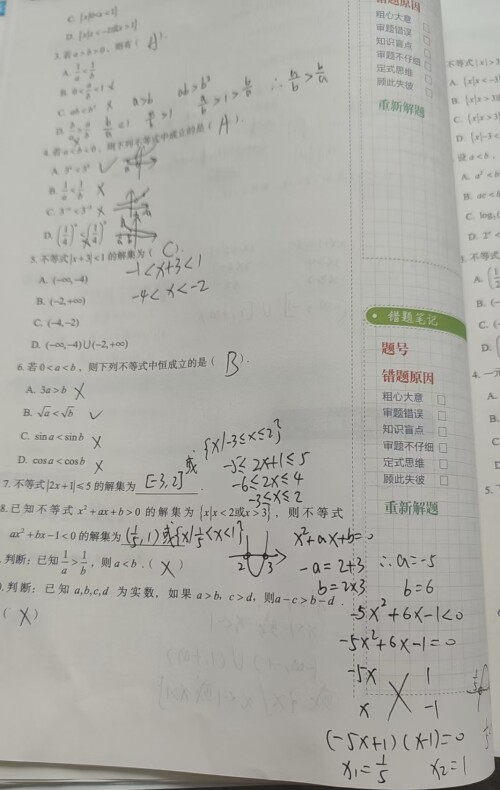 C. {x|0<x<1}
D. {x|x<-1或x>1}
3. 若a>b>0，则有（ A ）.
A. 1/a<1/b
B. 0<b/a<1 ×
C. ab<b² × a>b ab>b²
b/a<1 a/b>1 a/b>1>b/a ∴a/b>b/a
4. 若a<b<0，则下列不等式中成立的是（ A ）
A. 3ᵃ<3ᵇ ✓
B. 1/a<1/b ×
C. 3⁻ᵃ<3⁻ᵇ ×
D. (1/4)ᵃ<(1/4)ᵇ ×
5. 不等式|x+3|<1的解集为（ C ）.
A. (-∞,-4) -1<x+3<1
B. (-2,+∞) -4<x<-2
C. (-4,-2)
D. (-∞,-4)∪(-2,+∞)
6. 若0<a<b，则下列不等式中恒成立的是（ B ）.
A. 3a>b ×
B. √a<√b ✓
C. sina<sinb ×
D. cosa<cosb ×
7. 不等式|2x+1|≤5的解集为 [-3,2] 或 {x|-3≤x≤2} .
-5≤2x+1≤5
-6≤2x≤4
-3≤x≤2
8. 已知不等式x²+ax+b>0的解集为{x|x<2或x>3}，则不等式
ax²+bx-1<0的解集为 (1/5,1) 或{x|1/5<x<1}
. 判断：已知1/a>1/b，则a<b.（ × ）
. 判断：已知a,b,c,d为实数，如果a>b，c>d，则a-c>b-d.
（ × ）
2 3
x²+ax+b=0
-a=2+3 ∴a=-5
b=2×3 b=6
-5x²+6x-1<0
-5x²+6x-1=0
-5x 1
x -1
(-5x+1)(x-1)=0
x₁=1/5 x₂=1
错题原因
粗心大意
审题错误
知识盲点
审题不仔细
定式思维
顾此失彼
重新解题
错题笔记
题号
错题原因
粗心大意
审题错误
知识盲点
审题不仔细
定式思维
顾此失彼
重新解题
不等式|x|>3
A. {x|x<-3
B. {x|x>3
C. {x|x>3
D. {x|-3<
设a<b，
A. a²<b
B. ac<b
C. log
D. 2ᵃ<
. 不等式
A.
B. (-
C. (-
D.
4. 一元
A.
B.
C.
D.
5.